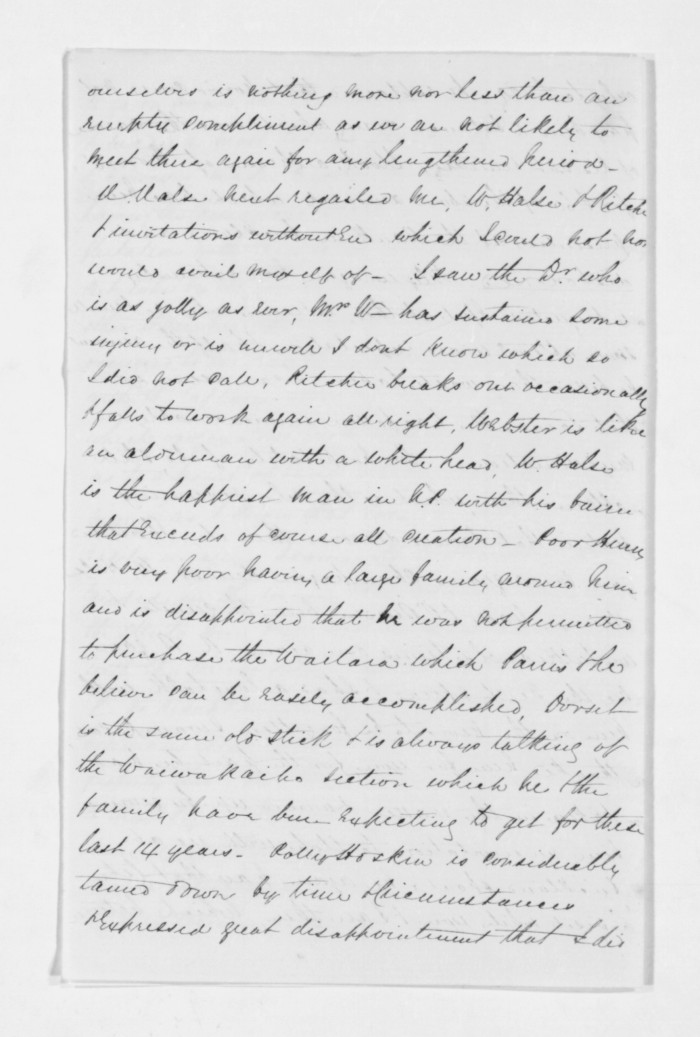 ourselves is nothing more nor less than an
empty compliment as we are not likely to
meet there again for any lengthened period -
Halse next regailed me, W. Halse & Ritchie
& invitations without End which I could not nor
would avail myself of - I saw the Dr. who
is as jolly as ever, Mrs W - has sustained some
injury or is unwell I dont know which so
I did not call, Ritchie breaks out occasionally
& falls to work again all right, Webster is like
an alderman with a white head, W. Halse
is the happiest man in N.P. with his bairn
that Exceeds of course all creation - Poor
is very poor having a large family around him
and is disappointed that he was not permitted
to purchase the Waitara which Parris & he
believe can be easely accomplished, Dorset
is the same old stick & is always talking of
the Waiwakaiho section which he & the
family have been Expecting to get for these
last 14 years - Polly Hoskin is considerably
tamed down by time & circumstances
& Expressed great disappointment that I did